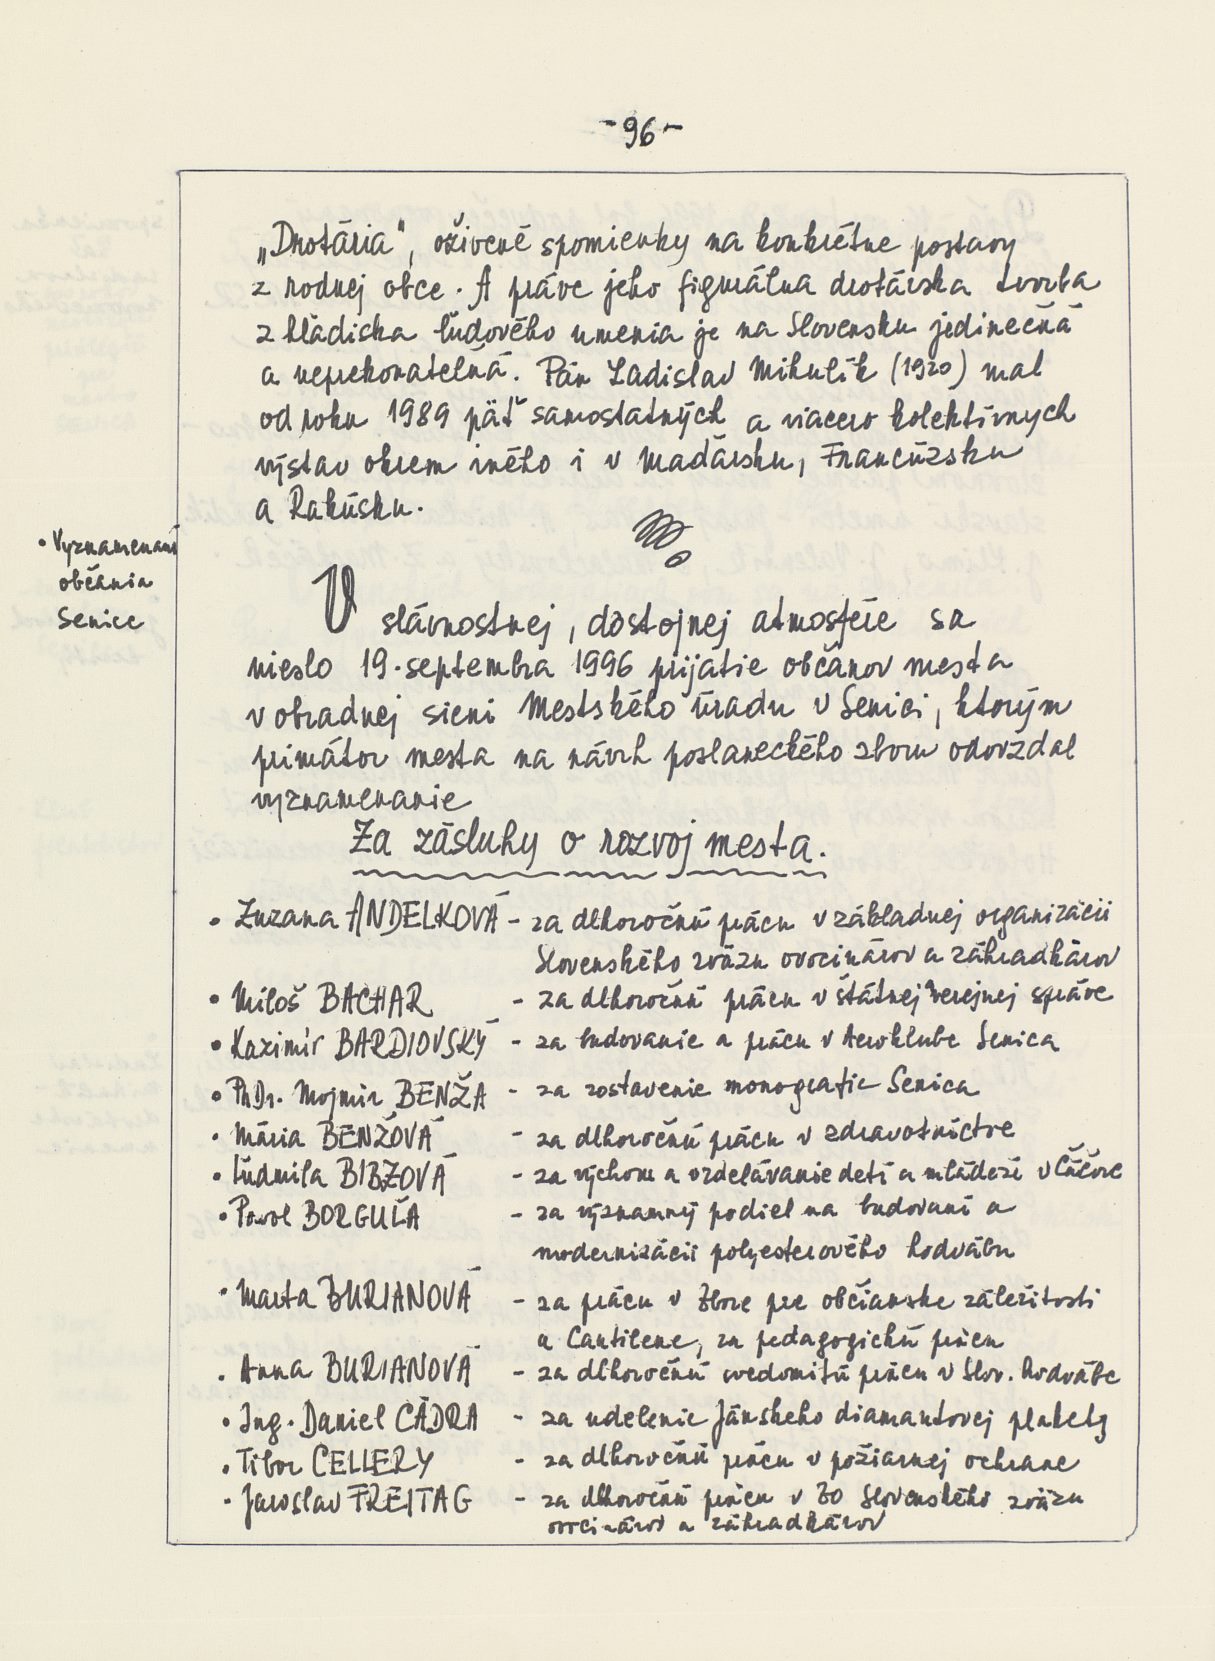 -96-
„Drotária", oživené spomienky na konkrétne postavy
z rodnej obce. A práve jeho figurálna drotárska tvorba
z hľadiska ľudového umenia je na Slovensku jedinečná
a neprekonateľná. Pán Ladislav Mikulík (1920) mal
od roku 1989 päť samostatných a viacero kolektívnych
výstav okrem iného i v Maďarsku, Francúzsku
a Rakúsku.
• Vyznamenaní
občania
Senice
V slávnostnej, dôstojnej atmosfére sa
nieslo 19. septembra 1996 prijatie občanov mesta
v obradnej sieni Mestského úradu v Senici, ktorým
primátor mesta na návrh poslaneckého zboru odovzdal
vyznamenanie
Za zásluhy o rozvoj mesta.
• Zuzana ANDELKOVÁ - za dlhoročnú prácu v základnej organizácii
Slovenského zväzu ovocinárov a záhradkárov
• Miloš BACHAR - za dlhoročnú prácu v štátnej verejnej správe
• Kazimír BARDIOVSKÝ - za budovanie a prácu v Aeroklube Senica
• PhDr. Mojmír BENŽA - za zostavenie monografie Senica
• Mária BENŽOVÁ - za dlhoročnú prácu v zdravotníctve
• Ľudmila BIBZOVÁ - za výchovu a vzdelávanie detí a mládeže v Čáčove
• Pavol BORGUĽA - za významný podiel na budovaní a
modernizácii polyesterového hodvábu
• Marta BURIANOVÁ - za prácu v Zbore pre občianske záležitosti
a Cantilene, za pedagogickú prácu
• Anna BURIANOVÁ - za dlhoročnú svedomitú prácu v Slov. hodvábe
• Ing. Daniel CÁDRA - za udelenie Jánskeho diamantovej plakety
• Tibor CELLERY - za dlhoročnú prácu v požiarnej ochrane
• Jaroslav FREITAG - za dlhoročnú prácu v ZO Slovenského zväzu
ovocinárov a záhradkárov